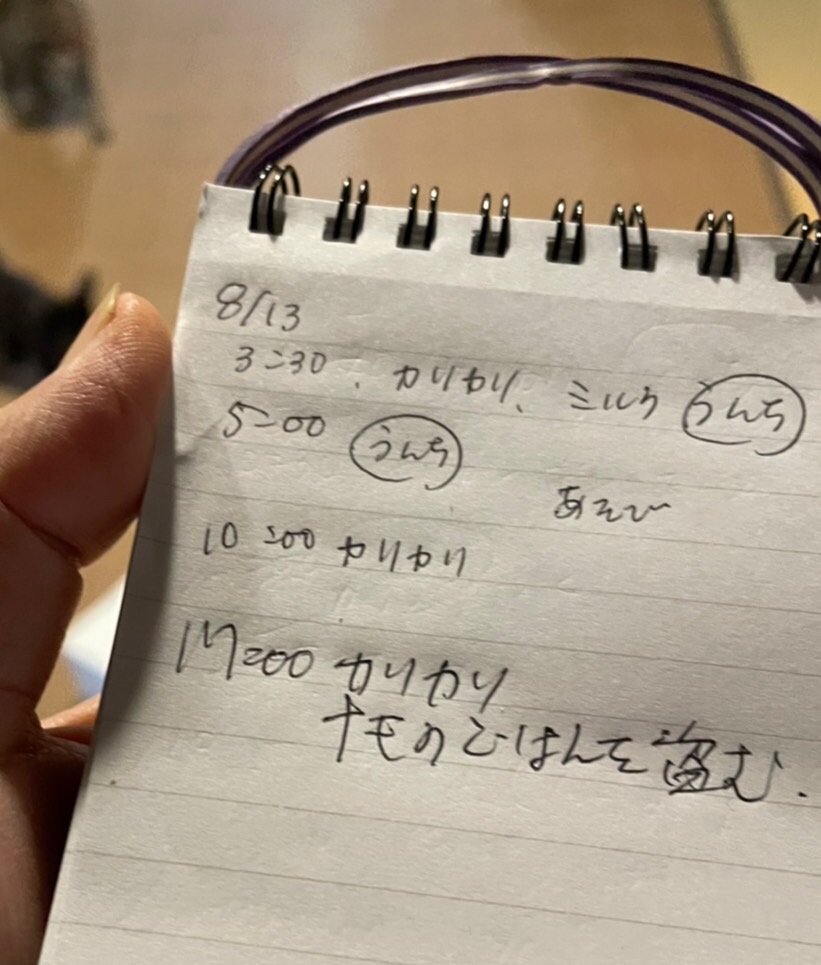 8/13
3:30、カリカリ、ミルク うんち
5:00 うんち
あそび
10:00 カリカリ
17:00 カリカリ
ナモのごはんを盗む.